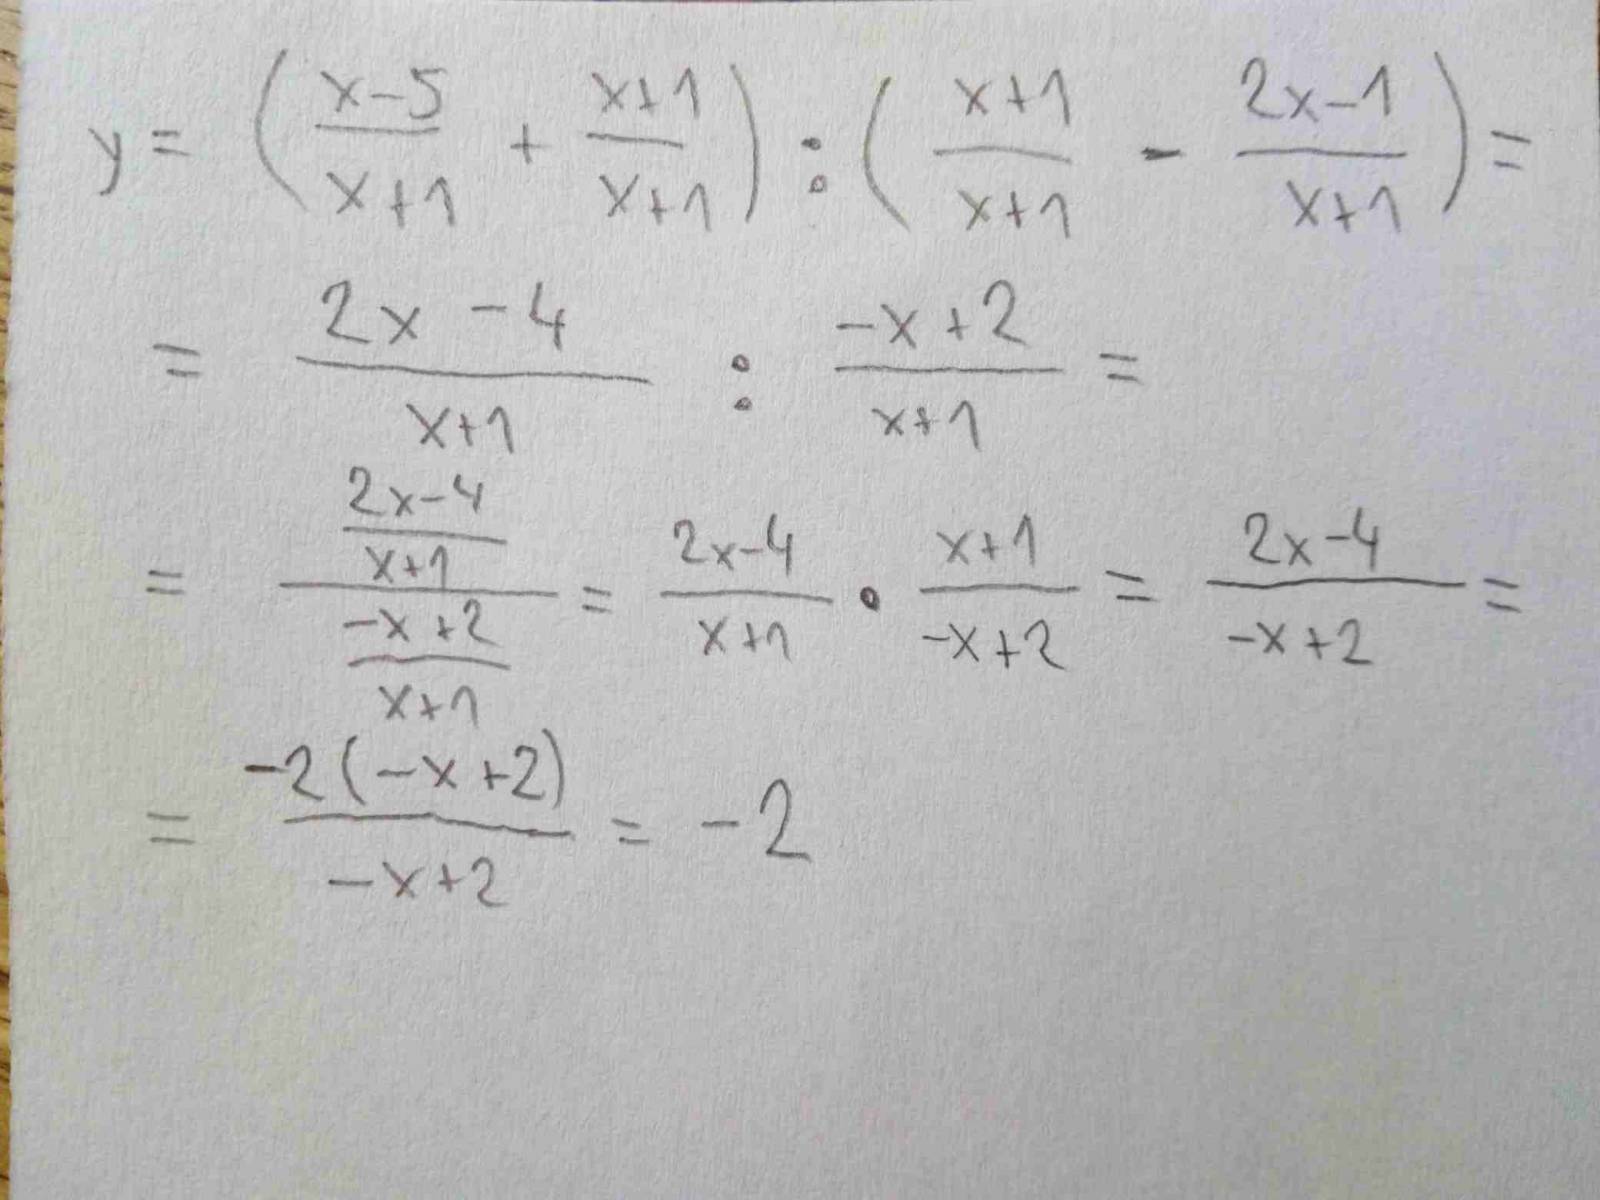 y = (x-5/x+1 + x+1/x+1) : (x+1/x+1 - 2x-1/x+1) =
= 2x-4/x+1 : -x+2/x+1 =
= 2x-4/x+1/-x+2/x+1 = 2x-4/x+1 · x+1/-x+2 = 2x-4/-x+2 =
= -2(-x+2)/-x+2 = -2